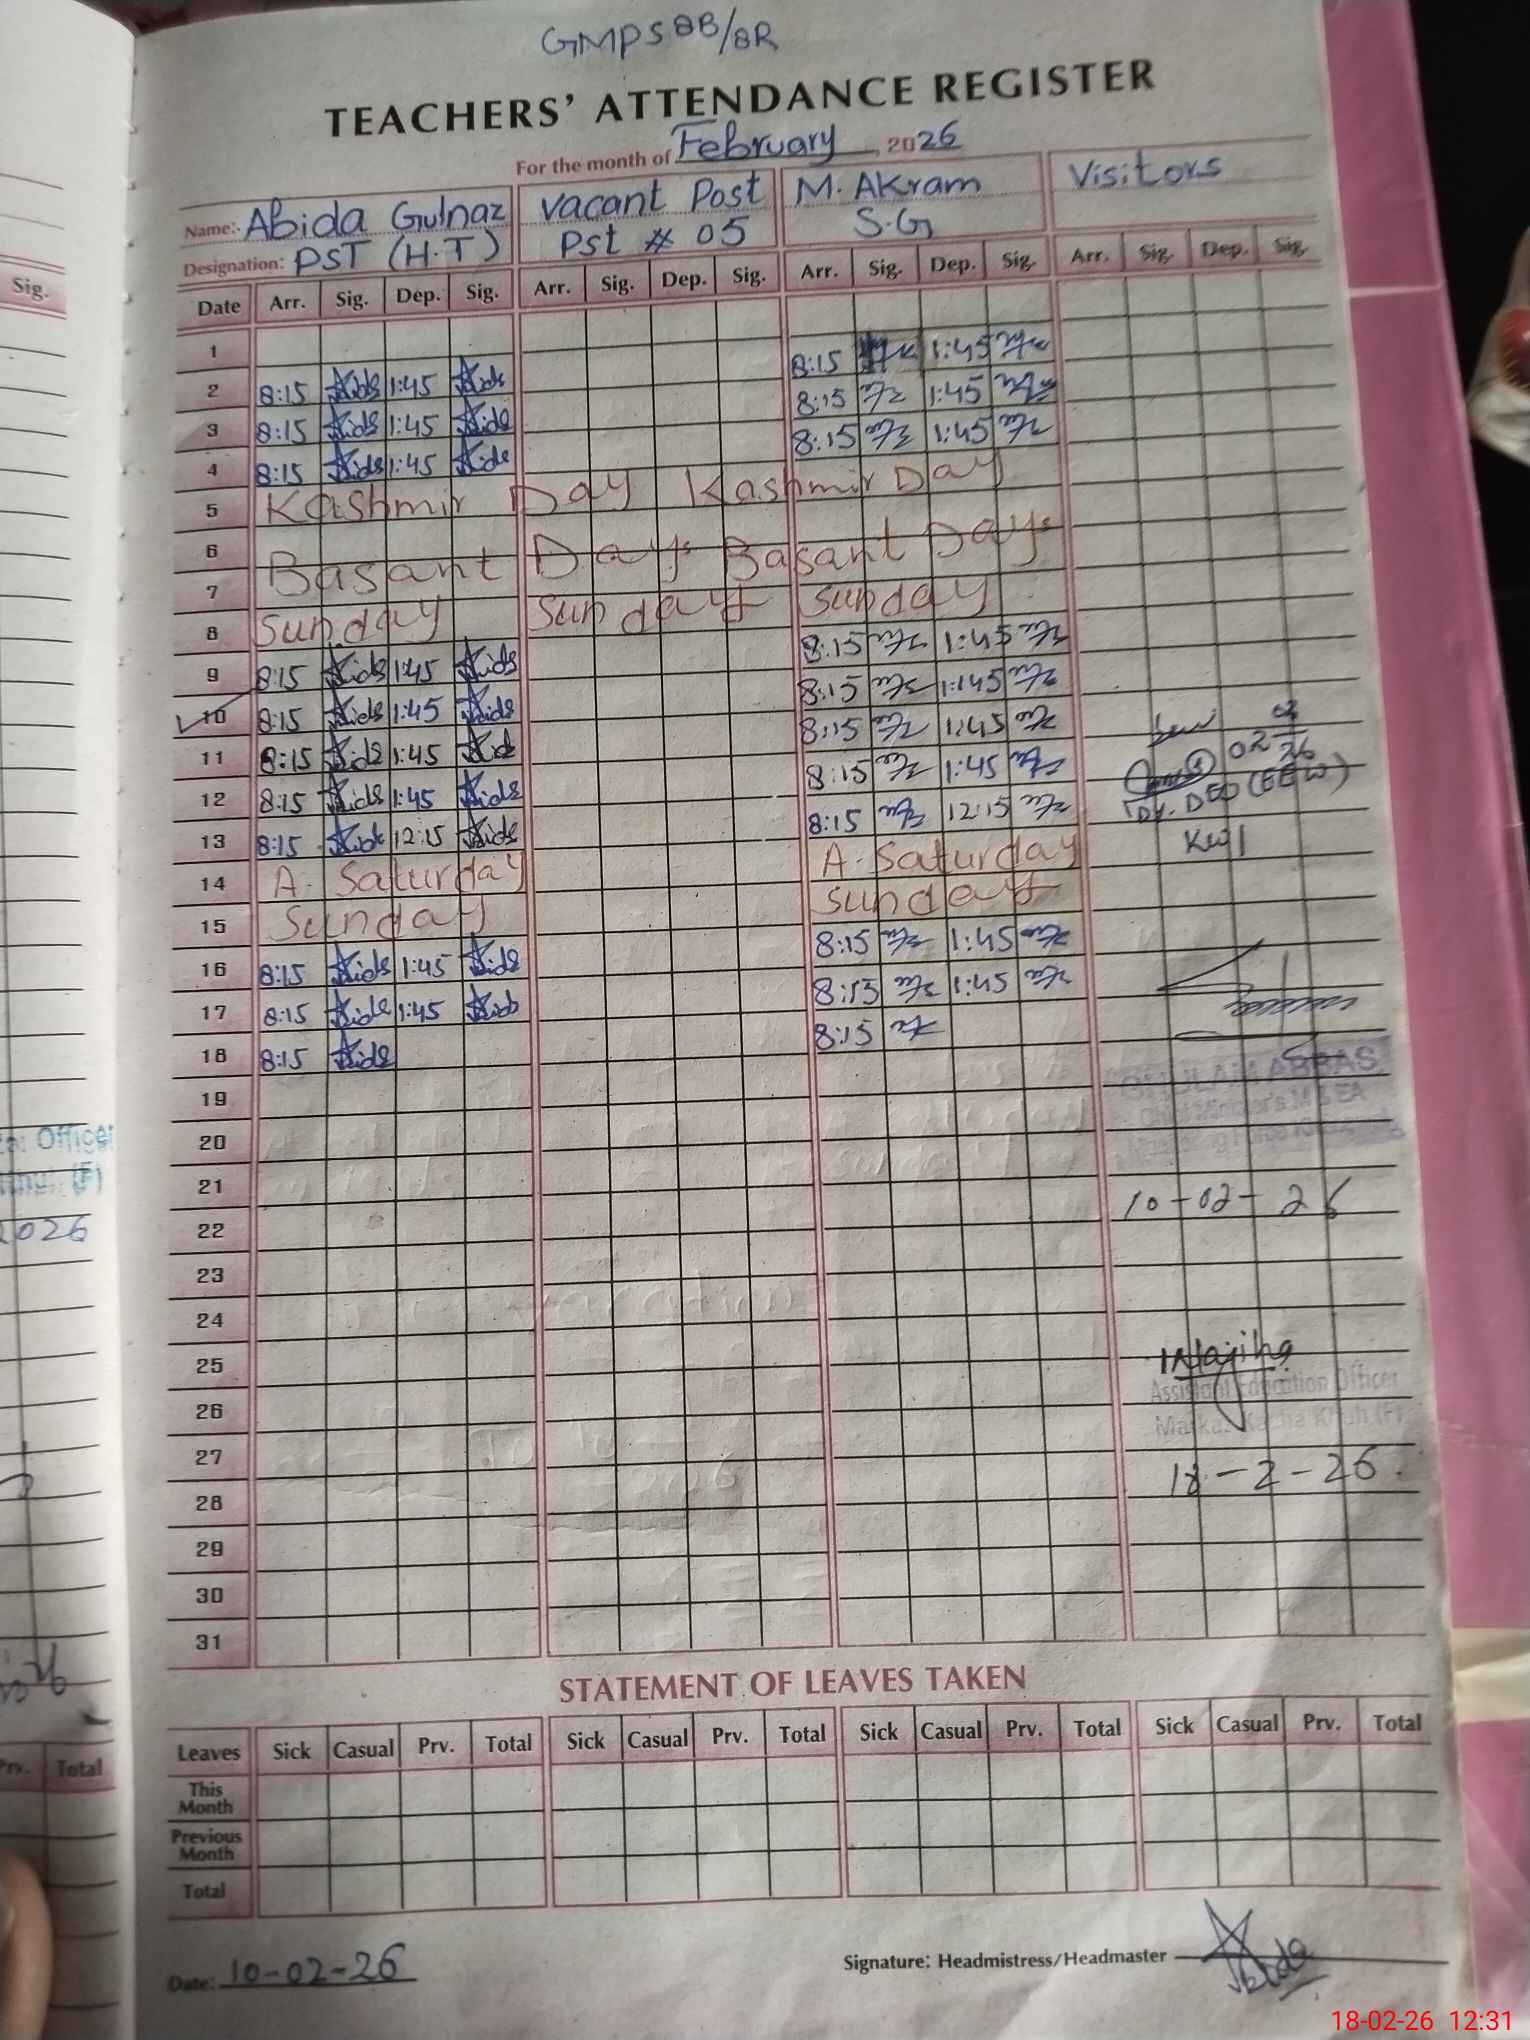 GMPS 8B/8R
TEACHERS' ATTENDANCE REGISTER
For the month of February, 2026
Name: Abida Gulnaz Vacant Post M. AKram Visitors
Designation: PST (H.T) Pst # 05 S.G
Date Arr. Sig. Dep. Sig. Arr. Sig. Dep. Sig. Arr. Sig. Dep. Sig. Arr. Sig. Dep. Sig.
1
2 8:15 1:45 8:15 1:45
3 8:15 1:45 8:15 1:45
4 8:15 1:45 8:15 1:45
5 Kashmir Day Kashmir Day
6
7 Basant Days Basant Days
8 Sunday Sunday Sunday
9 8:15 1:45 8:15 1:45
10 8:15 1:45 8:15 1:45
11 8:15 1:45 8:15 1:45
12 8:15 1:45 8:15 1:45
13 8:15 12:15 8:15 12:15
Dy. DEO (EEW)
Kwl
14 A. Saturday A. Saturday
15 Sunday Sunday
16 8:15 1:45 8:15 1:45
17 8:15 1:45 8:15 1:45
18 8:15 8:15
19
GHULAM ABBAS
20
21
10-02-26
22
23
24
25
Assistant Education Officer
26
Markaz Kacha Khuh (F)
27
18-2-26.
28
29
30
31
STATEMENT OF LEAVES TAKEN
Leaves Sick Casual Prv. Total Sick Casual Prv. Total Sick Casual Prv. Total Sick Casual Prv. Total
This Month
Previous Month
Total
Date: 10-02-26
Signature: Headmistress/Headmaster Abida
Sig.
Officer
(F)
2026
Prv. Total
18-02-26 12:31